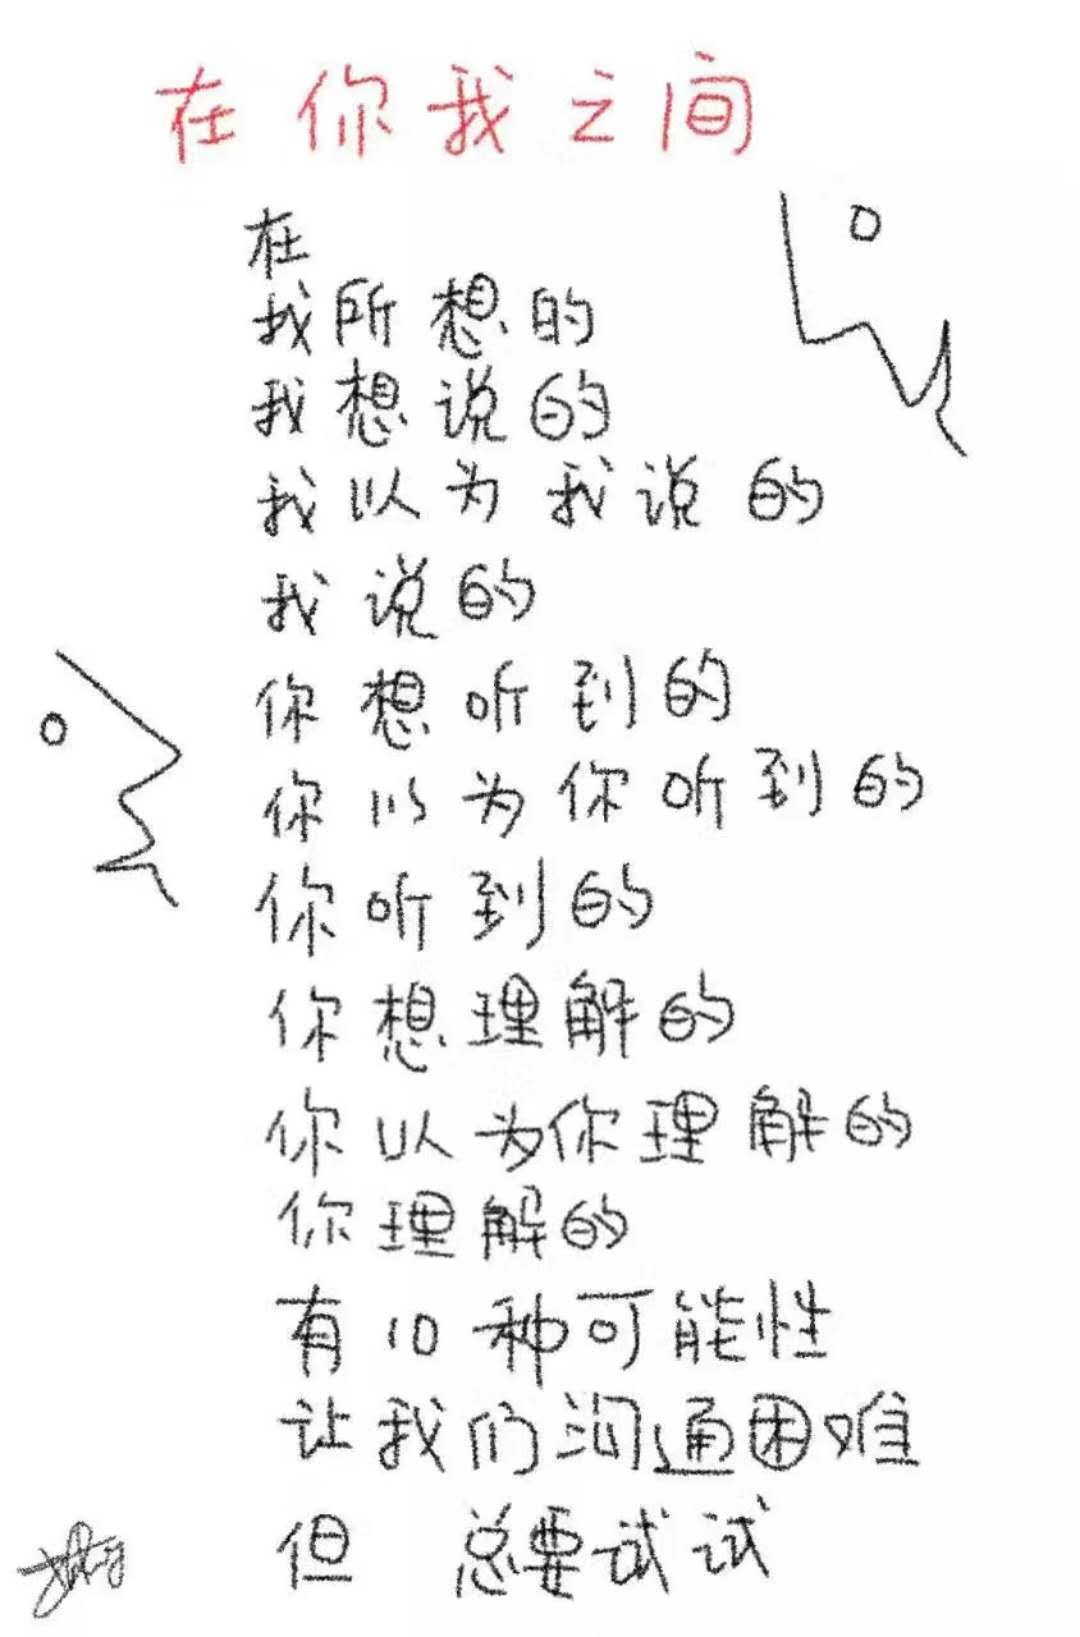 在你我之间
在
我所想的
我想说的
我以为我说的
我说的
你想听到的
你以为你听到的
你听到的
你想理解的
你以为你理解的
你理解的
有10种可能性
让我们沟通困难
但 总要试试